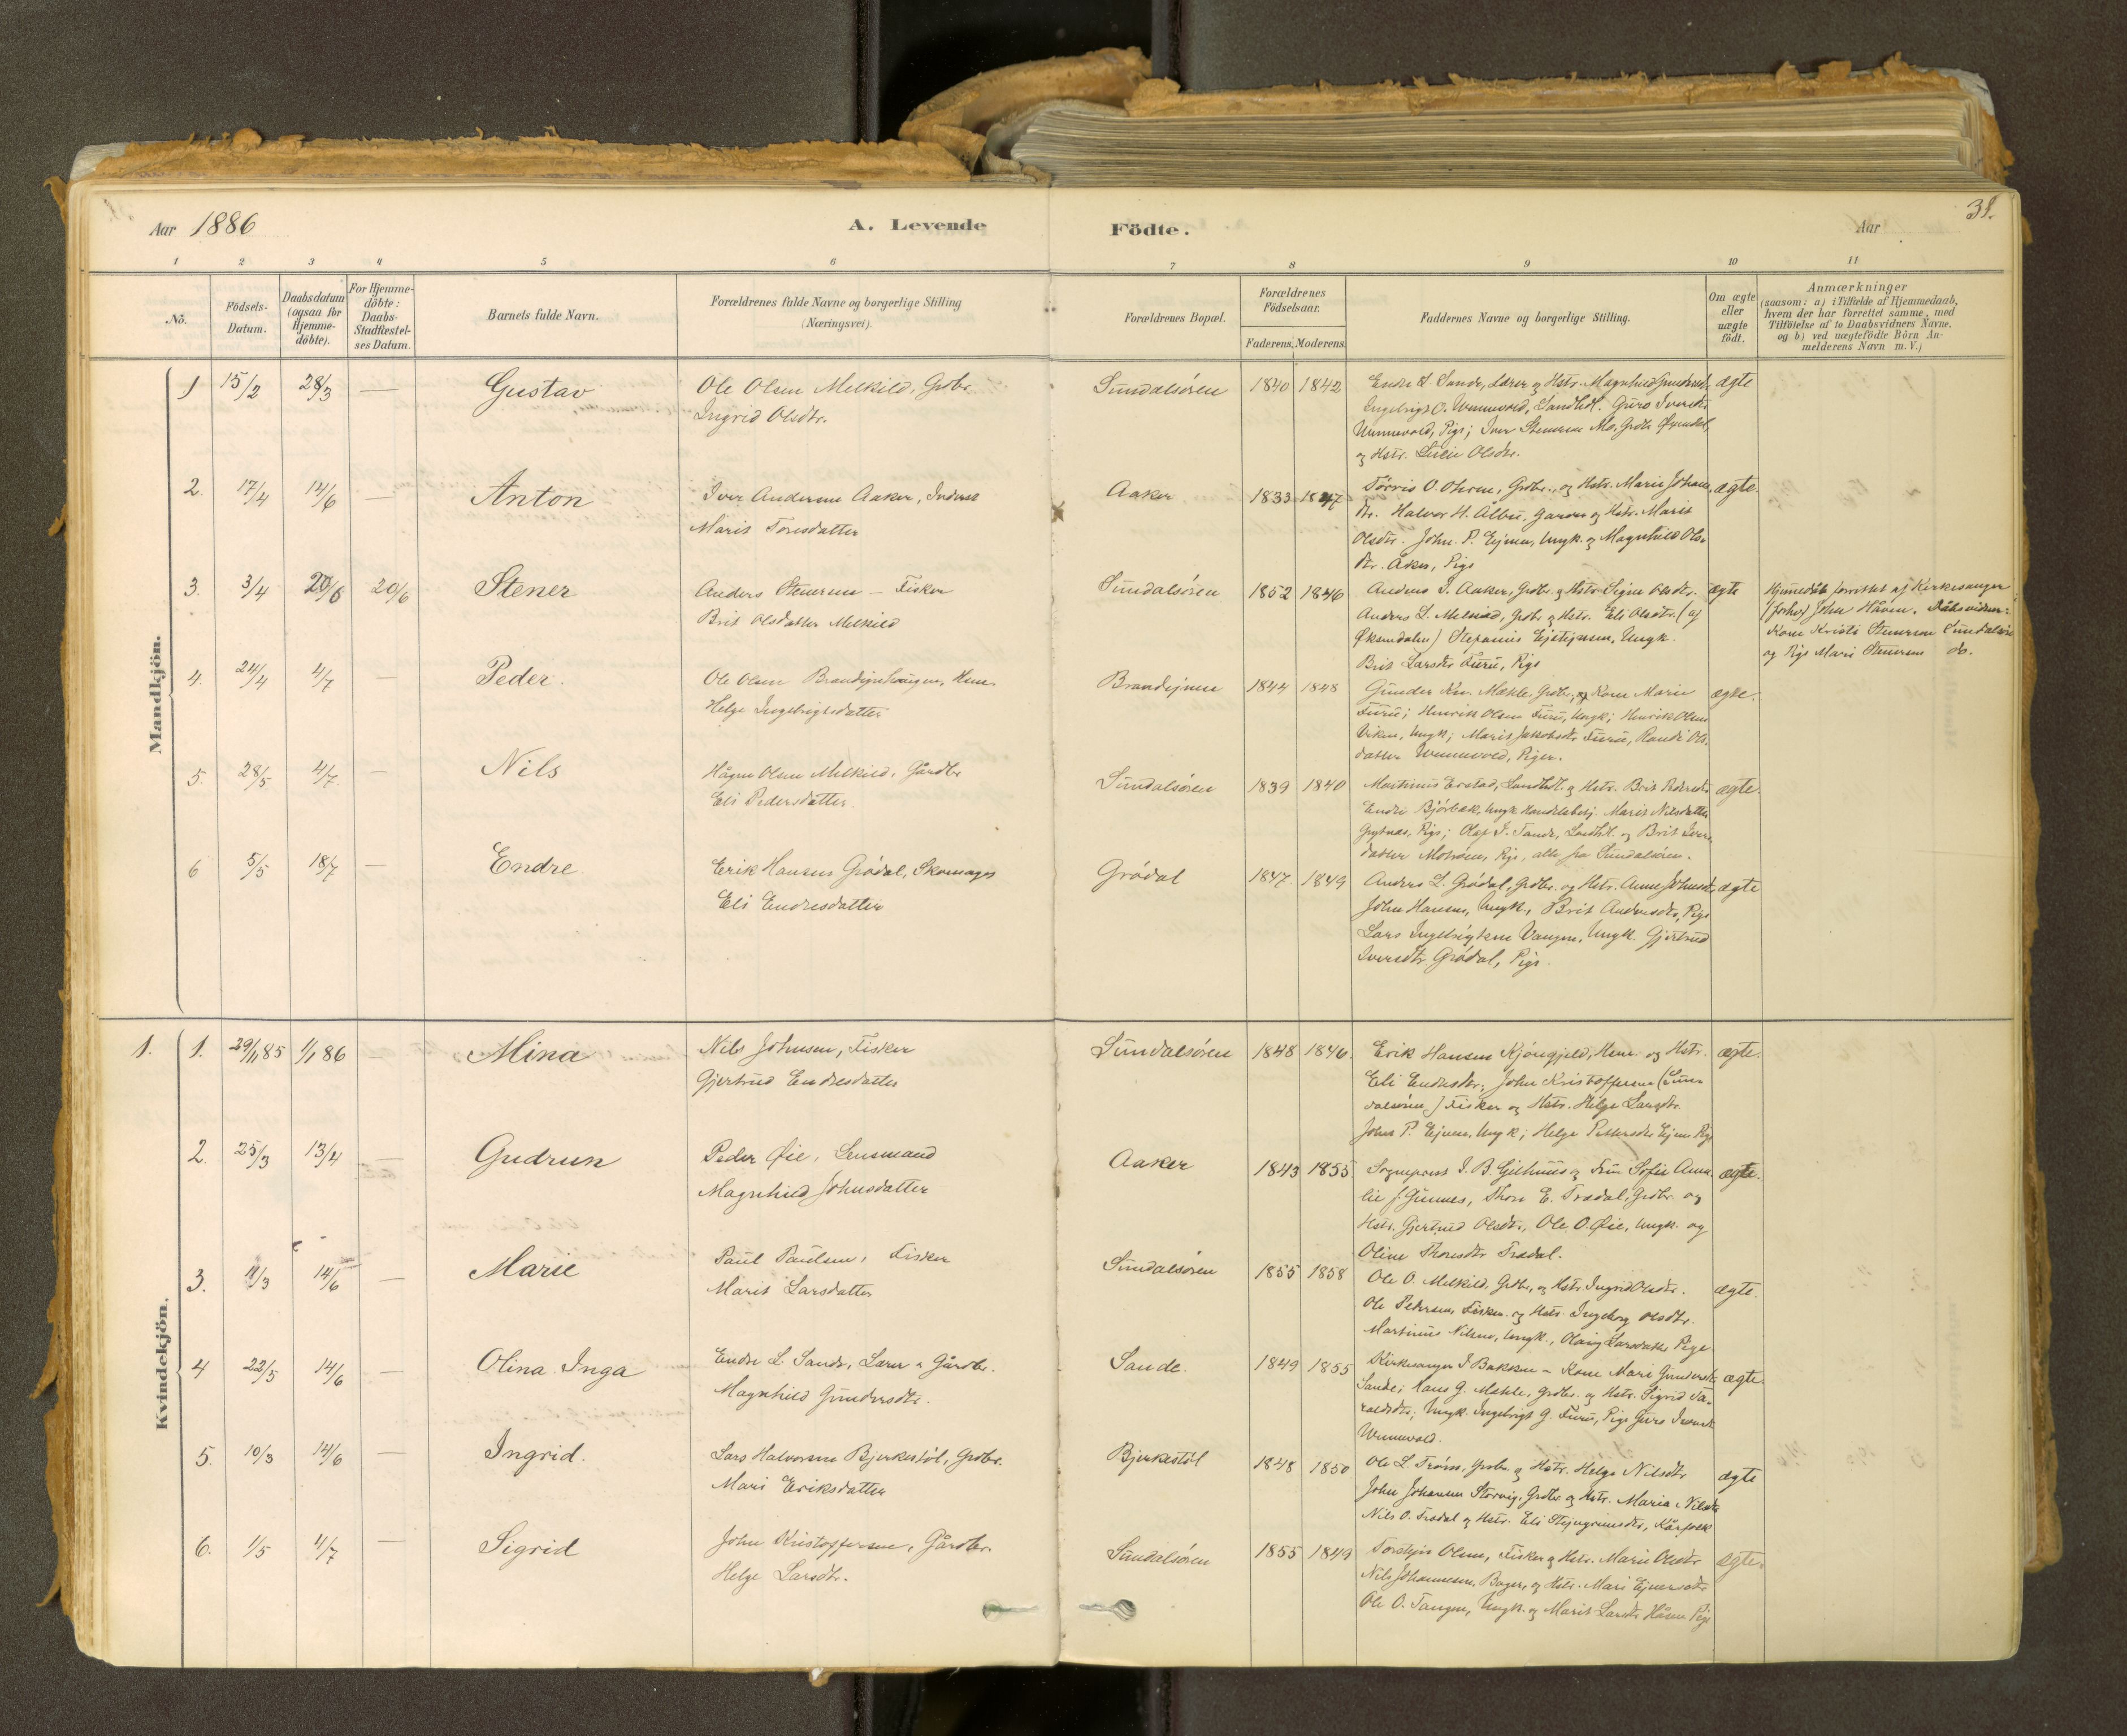 Aar 1886
A. Levende Födte.
Aar
31.
1 2 3 4 5 6 7 8 9 10 11
No.
Födsels-Datum.
Daabsdatum (ogsaa for Hjemme-döbte).
For Hjemme-döbte: Daabs-Stadfæstel-ses Datum.
Barnets fulde Navn.
Forældrenes fulde Navne og borgerlige Stilling (Næringsvei).
Forældrenes Bopæl.
Forældrenes Födselsaar.
Faderens. Moderens.
Faddernes Navne og borgerlige Stilling.
Om ægte eller uægte födt.
Anmærkninger
(saasom: a) i Tilfælde af Hjemmedaab,
hvem der har forrettet samme, med
Tilföielse af to Daabsvidners Navne.
og b) ved uægtefödte Börn An-
melderens Navn m. V.)
Mandkjön.
1 15/2 28/3 — Gustav Ole Olsen Melkild, Grdbr. Sundalsören 1840 1842 Endre L. Sande, Lærer og Hstr. Magnhild Gundersd. ægte
Ingrid Olsdtr.
Ingebrigt O. Wennevold, Landhdl. Guro Iversdtr
Wennevold, Pige; Iver Stenersen Mo, Grdbr
og Hstr. Olsdtr.
2. 17/4 14/6 — Anton Iver Andersen Aaker, Inderst Aaker 1833 1847 O. Ohren, Grdbr., og Hstr. Marie Johans ægte.
Marit Toresdatter
dtr. Halvor H. Albu, og Hstr. Marit
Olsdtr. John P. Ejnen, Ungk. og Magnhild Ols-
dtr. Aker, Pige
3. 3/4 20/6 20/6 Stener Anders Stenersen — Fisker Sundalsören 1852 1846 Anders I. Aaker, Grdbr. og Hstr. Signe Olsdtr. ægte
Brit Olsdatter Melkild
Anders L. Melkild, Grdb. og Hstr. Eli Olsdtr. (af
Öksendalen) Ungk.
Brit Larsdtr Furu, Pige
Hjemmedöbt forrettet af Kirkesanger
(forhv) John Håven. Dåbsvidner:
Kone Kristi Stenersen Sundalsören
og Pige Mari Stenersen do.
4. 24/4 4/7 — Peder. Ole Olsen Brandejnhaugen, Brandejnen 1844 1848 Gunder Kn. Mæhle, Grdbr, og Kone Marie ægte.
Helge Ingebrigtsdatter
Furu; Henrik Olsen Furu, Ungk; Henrik Olsen
Viken, Ungk; Marit Jakobsdtr Furu, Randi Ols-
datter Wennevold, Piger.
5. 28/5 4/7 — Nils Hågen Olsen Melkild, Gårdbr Sundalsören 1839 1840 Martinus Landhdl. og Hstr. Brit Pedersdtr ægte.
Eli Pedersdatter.
Endre Björbæk, Ungk Handelsbetj. Marit Nilsdatter
Grytnæs, Pige; Olaf I. Tande, Landhdl. og Brit Ivers-
datter Pige, alle fra Sundalsören.
6 5/5 18/7 — Endre Erik Hansen Grödal, Skomager Grödal 1847 1849 Anders L. Grödal, Grdbr. og Hstr. Anne Johnsdtr ægte
Eli Endresdatter
John Hansen, Ungk., Brit Andersdtr, Pige
Lars Ingebrigtsen Vangen, Ungk. Gjertrud
Iversdtr. Grödal, Pige.
Kvindekjön.
1. 1. 29/11 85 1/1 86 Mina Nils Johnsen, Fisker Sundalsören 1848 1846. Erik Hansen Kjöngjeld, og Hstr. ægte.
Gjertrud Endresdatter
Eli Endresdtr; John Kristoffersen (Sun-
dalsören) Fisker og Hstr. Helge Larsdtr.
John P. Ejnen, Ungk; Helge Pettersdtr Ejnen Pige
2. 25/3 13/4 — Gudrun Peder Öie, Lensmand Aaker 1843 1855. Sogneprest I. B. Gjelhuus og Fru Sofie Ama- ægte.
Magnhild Johnsdatter
lie f. Gunnes, Thore E. Trædal, Grdbr. og
Hstr. Gjertrud Olsdtr., Ole O. Öie, Ungk. og
Oline Thoresdtr Trædal.
3. 11/3 14/6 — Marie Paul Paulsen, Fisker Sundalsören 1855 1858 Ole O. Melkild, Grdbr, og Hstr. Ingrid Olsdtr. ægte.
Marit Larsdatter
Ole Pedersen, Fisker og Hstr. Ingeborg Olsdtr.
Martinus Nilsen, Ungk., Larsdatter Pige
4 22/5 14/6 — Olina Inga Endre L. Sande, Lærer & Gårdbr. Sande. 1849 1855 Kirkesanger I Bakken — Kone Mari Gundersdtr ægte.
Magnhild Gundersdtr.
Sande; Hans G. Mæhle, Grdbr. og Hstr. Sigrid Ta-
raldsdtr; Ungk. Ingebrigt G. Furu, Pige Guro Iversdtr
Wennevold.
5. 10/3 14/6 — Ingrid. Lars Halvorsen Bjerkestöl, Grdbr. Bjerkestöl 1848 1850 Ole L. Grdbr. og Hstr. Helge Nilsdtr ægte
Mari Eriksdatter
John Johansen Grdbr. og Hstr. Maria Nilsdtr
Nils O. Trædal og Hstr. Eli Stejngrimsdtr, Kårfolk
6. 1/5 4/7 — Sigrid John Kristoffersen, Gårdbr. Sundalsören 1855 1849 Torstejn Olsen, Fisker og Hstr. Marie Olsdtr ægte.
Helge Larsdtr.
Nils Johannesen, Bager, og Hstr. Mari Ejnersdtr
Ole O. Tangen, Ungk. og Marit Larsdtr Håven Pige